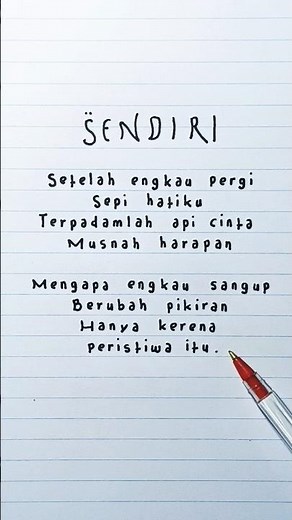 SENDIRI
Setelah engkau pergi
Sepi hatiku
Terpadamlah api cinta
Musnah harapan
Mengapa engkau sangup
Berubah pikiran
Hanya kerena
peristiwa itu.